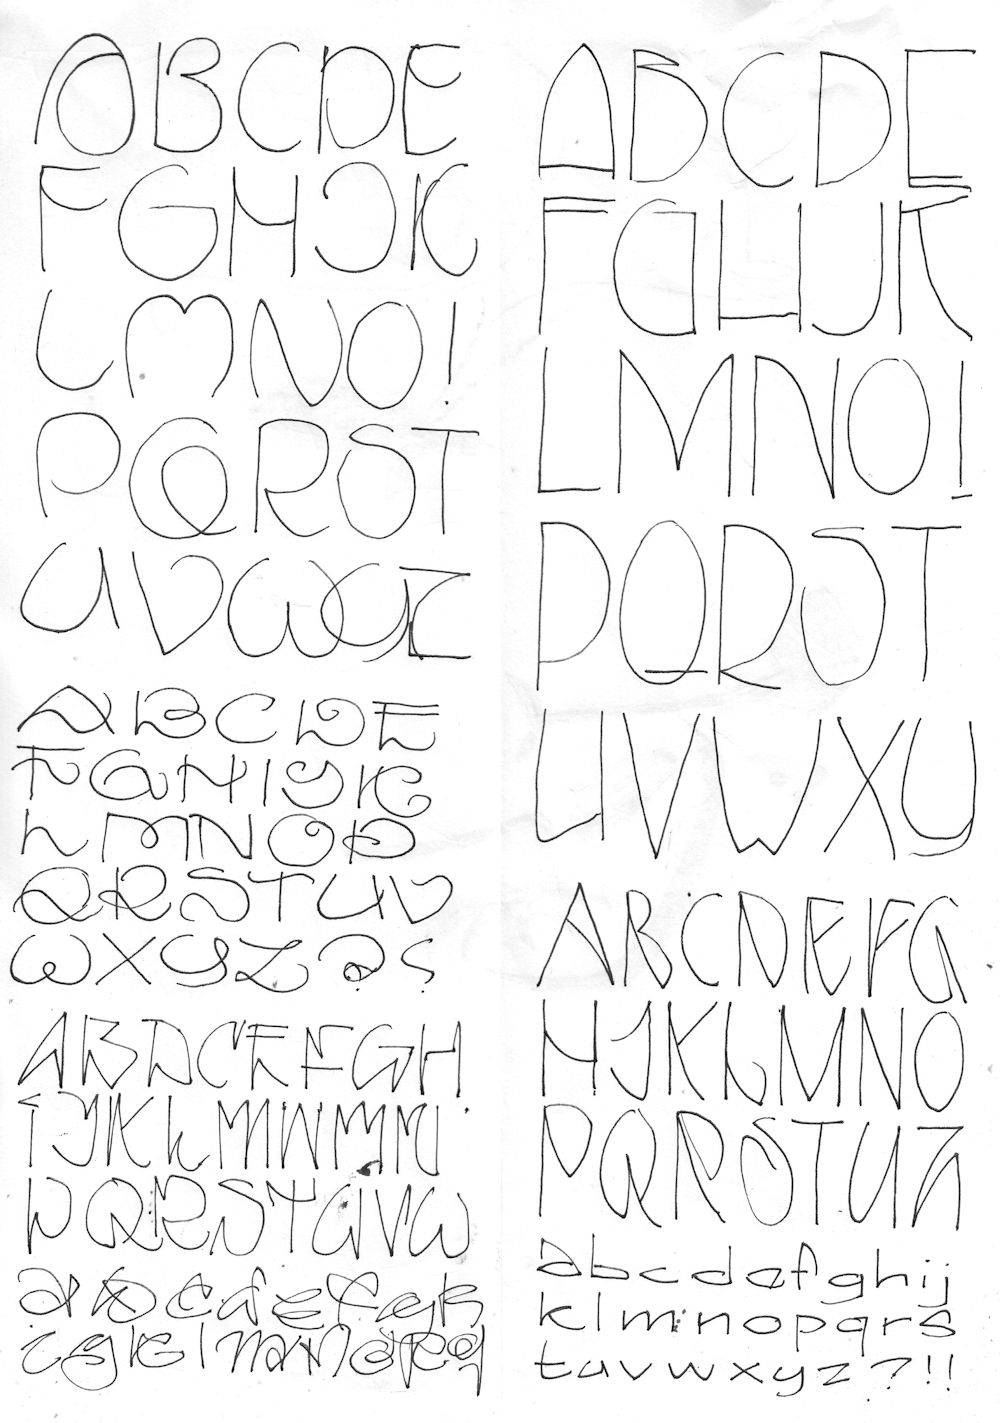 ABCDE
FGHJK
LMNO!
PQRST
UVWXYZ
ABCDE
FGHIJK
LMNOP
QRSTUV
WXYZ?S
ABDCEFGH
IJKLMNMN
PQRSTUVW
abcdefgh
ijklmnopq
ABCDE
FGHIJK
LMNO!
PQRST
UVWXY
ABCDEFG
HJKLMNO
PQRSTUZ
abcdefghij
klmnopqrs
tuvwxyz?!!